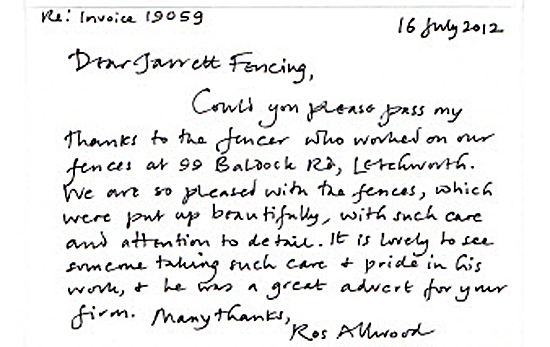 Re: Invoice 19059
16 July 2012
Dear Jarrett Fencing,
Could you please pass my
thanks to the fencer who worked on our
fences at 99 Baldock Rd, Letchworth.
We are so pleased with the fences, which
were put up beautifully, with such care
and attention to detail. It is lovely to see
someone taking such care + pride in his
work, + he was a great advert for your
firm. Many thanks,
Ros Allwood